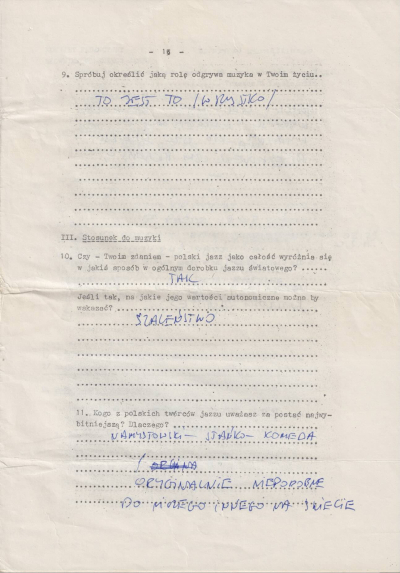 - 16 -
9. Spróbuj określić jaką rolę odgrywa muzyka w Twoim życiu..
TO JEST TO /WSZYSTKO/
III. Stosunek do muzyki
10. Czy - Twoim zdaniem - polski jazz jako całość wyróżnia się
w jakiś sposób w ogólnym dorobku jazzu światowego? .....
TAK
Jeśli tak, na jakie jego wartości autonomiczne można by
wskazać?
SZALEŃSTWO
11. Kogo z polskich twórców jazzu uważasz za postać najwy-
bitniejszą? Dlaczego?
NAMYSŁOWSKI - STAŃKO - KOMEDA
ORYGINALNIE NIEPODOBNE
DO NICZEGO INNEGO NA ŚWIECIE